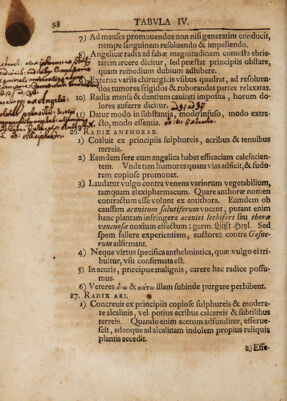 98 TABVLA IV.
7) Ad menses promouendos non nisi generatim conducit,
nempe sanguinem resoluendo & impellendo.
8) Angelicae radix ad fabae magnitudinem comesta ebrie-
tatem arcere dicitur, sed praestat principiis obstare,
quam remedium dubium adhibere.
9) Externe variis chirurgicis vsibus quadrat, ad resoluen-
dos tumores frigidos & roborandas partes relaxatas.
10) Radix mansa & dentium cauitati imposita, horum do-
lores auferre dicitur.
11) Datur modo in substantia, modo infuso, modo extra-
cto, modo essentia.
26. RADIX ANTHORAE.
1) Coäluit ex principiis sulphureis, acribus & tenuibus
terreis.
2) Eamdem fere cum angelica habet efficaciam calefacien-
tem. Vnde tam humores quam vias adficit, & sudo-
rem copiose promouet.
3) Laudatur vulgo contra venena variorum vegetabilium,
tamquam alexipharmacum. Quare anthorae nomen
contractum esse volunt ex antithora. Eamdem ob
caussam aconitum salutiferum vocant, putant enim
hanc plantam infringere aconiti lethiferi seu thorae
venenosae noxium effectum; germ. Gifft-Heyl. Sed
spem fallere experientiam, auctores contra Gesne-
rum adfirmant.
4) Neque virtus specifica anthelmintica, quae vulgo ei tri-
buitur, vsu confirmata est.
5) In curis, praecipue malignis, carere hac radice possu-
mus.
6) Veteres ἄνω & κάτω illam subinde purgare perhibent.
27. RADIX ARI.
1) Concreuit ex principiis copiose sulphureis & modera-
te alcalinis, vel potius acribus calcareis & subtilibus
terreis. Quando enim acetum adfunditur, efferue-
scit, adeoque ad alcalinam indolem propius reliquis
plantis accedit.
2) Esse-